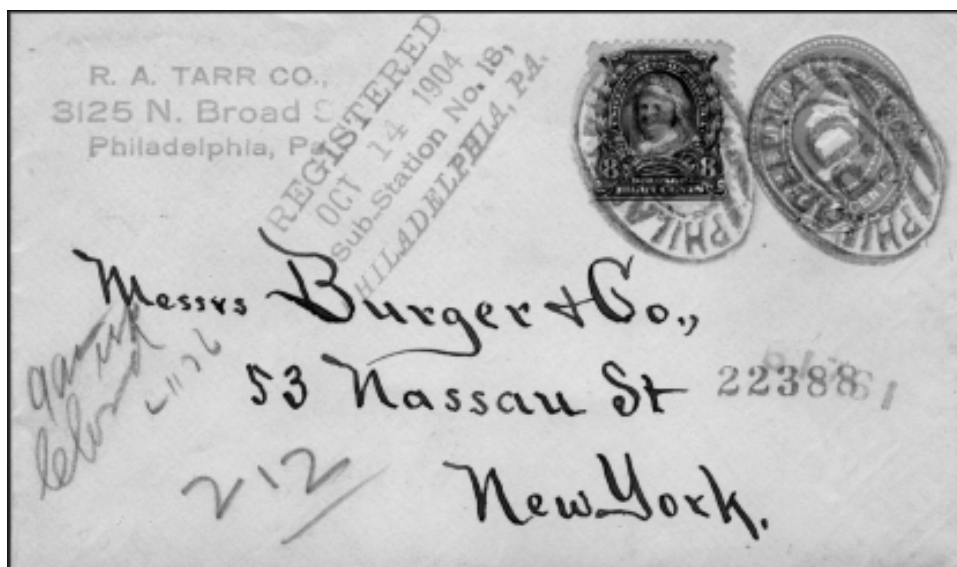 R. A. TARR CO.,
3125 N. Broad S
Philadelphia, Pa
REGISTERED
OCT 14 1904
Sub-Station No. 18,
PHILADELPHIA, PA.
8 8
EIGHT CENTS
PHILADELPHIA
Messrs Burger & Co.,
53 Nassau St
22388
New York.
212